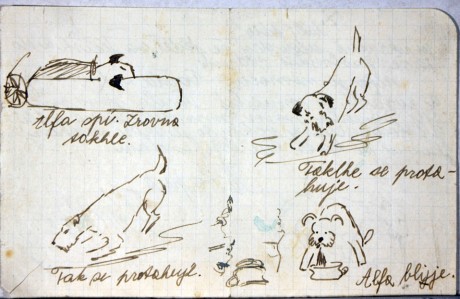 Alfa spí. Zrovna
takhle.
Takhle se prota-
huje.
Tak se protahuje.
Alfa blíže.